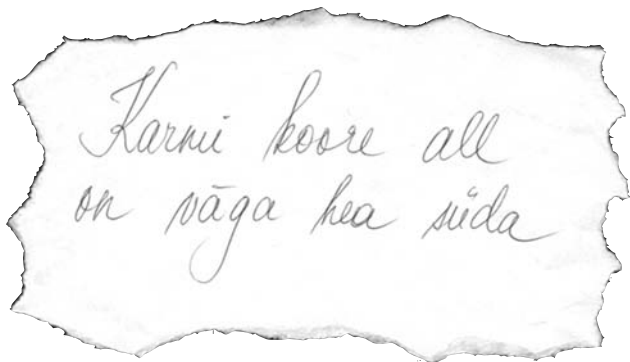 Karmi koore all
on väga hea süda